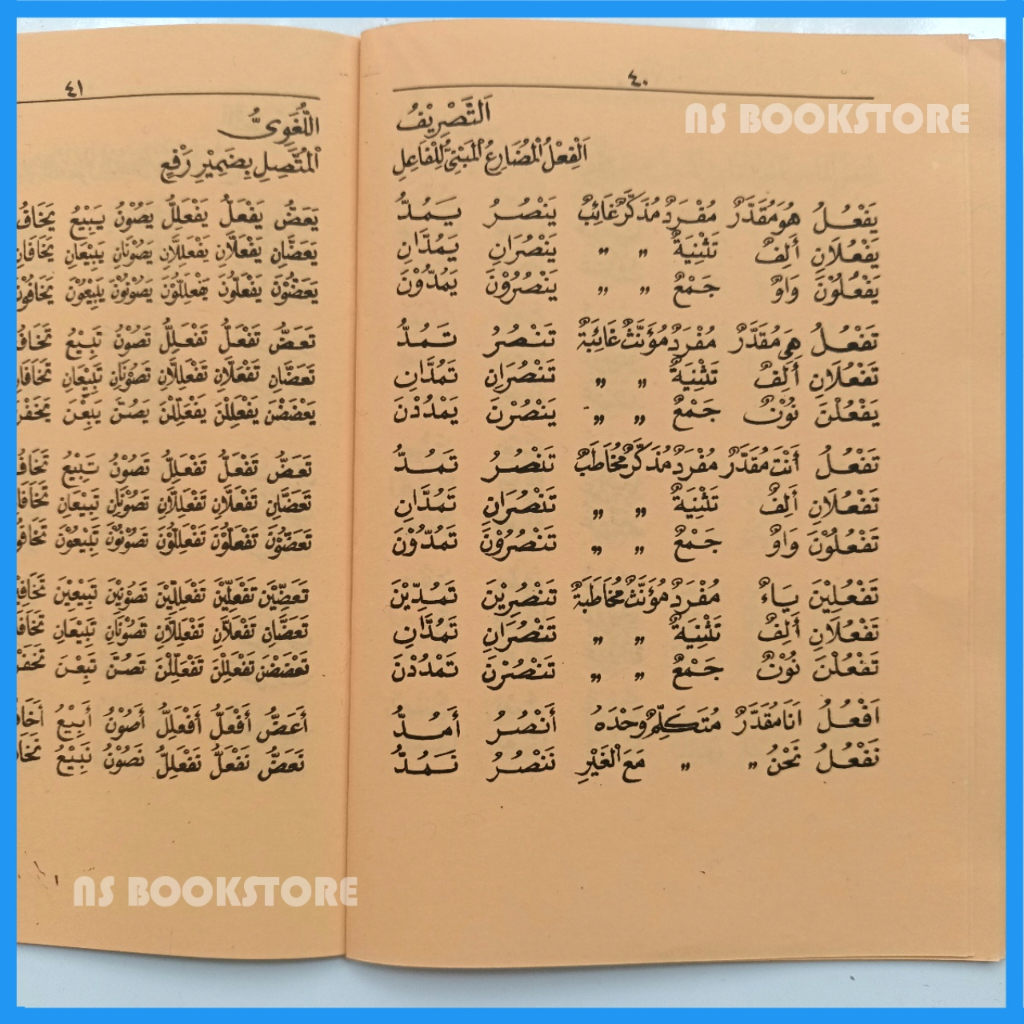 ٤٠
NS BOOKSTORE
اَلتَّصْرِيْفُ
اَلْفِعْلُ الْمُضَارِعُ الْمَبْنِيُّ لِلْفَاعِلِ
يَفْعُلُ هُوَ مُقَدَّرٌ مُفْرَدٌ مُذَكَّرٌ غَائِبٌ يَنْصُرُ يَمُدُّ
يَفْعُلَانِ أَلِفٌ تَثْنِيَةٌ " " يَنْصُرَانِ يَمُدَّانِ
يَفْعُلُوْنَ وَاوٌ جَمْعٌ " " يَنْصُرُوْنَ يَمُدُّوْنَ
تَفْعُلُ هِيَ مُقَدَّرٌ مُفْرَدٌ مُؤَنَّثٌ غَائِبَةٌ تَنْصُرُ تَمُدُّ
تَفْعُلَانِ أَلِفٌ تَثْنِيَةٌ " " تَنْصُرَانِ تَمُدَّانِ
يَفْعُلْنَ نُوْنٌ جَمْعٌ " " يَنْصُرْنَ يَمْدُدْنَ
تَفْعُلُ أَنْتَ مُقَدَّرٌ مُفْرَدٌ مُذَكَّرٌ مُخَاطَبٌ تَنْصُرُ تَمُدُّ
تَفْعُلَانِ أَلِفٌ تَثْنِيَةٌ " " تَنْصُرَانِ تَمُدَّانِ
تَفْعُلُوْنَ وَاوٌ جَمْعٌ " " تَنْصُرُوْنَ تَمُدُّوْنَ
تَفْعُلِيْنَ يَاءٌ مُفْرَدٌ مُؤَنَّثٌ مُخَاطَبَةٌ تَنْصُرِيْنَ تَمُدِّيْنَ
تَفْعُلَانِ أَلِفٌ تَثْنِيَةٌ " " تَنْصُرَانِ تَمُدَّانِ
تَفْعُلْنَ نُوْنٌ جَمْعٌ " " تَنْصُرْنَ تَمْدُدْنَ
اَفْعُلُ اَنَا مُقَدَّرٌ مُتَكَلِّمٌ وَحْدَهُ أَنْصُرُ أَمُدُّ
نَفْعُلُ نَحْنُ " " مَعَ الْغَيْرِ نَنْصُرُ نَمُدُّ
٤١
اللُّغَوِيُّ
الْمُتَّصِلِ بِضَمِيْرِ رَفْعٍ
يَعَضُّ يَفْعَلُّ يَفْعَلِلُّ يَصُوْنُ يَبِيْعُ
يَعَضَّانِ يَفْعَلَّانِ يَفْعَلِلَّانِ يَصُوْنَانِ يَبِيْعَانِ
يَعَضُّوْنَ يَفْعَلُّوْنَ يَفْعَلِلُّوْنَ يَصُوْنُوْنَ يَبِيْعُوْنَ
تَعَضُّ تَفْعَلُّ تَفْعَلِلُّ تَصُوْنُ تَبِيْعُ
تَعَضَّانِ تَفْعَلَّانِ تَفْعَلِلَّانِ تَصُوْنَانِ تَبِيْعَانِ
يَعْضَضْنَ يَفْعَلِلْنَ يَفْعَلِلْنَ يَصُنَّ يَبِعْنَ
تَعَضُّ تَفْعَلُّ تَفْعَلِلُّ تَصُوْنُ تَبِيْعُ
تَعَضَّانِ تَفْعَلَّانِ تَفْعَلِلَّانِ تَصُوْنَانِ تَبِيْعَانِ
تَعَضُّوْنَ تَفْعَلُّوْنَ تَفْعَلِلُّوْنَ تَصُوْنُوْنَ تَبِيْعُوْنَ
تَعَضِّيْنَ تَفْعَلِّيْنَ تَفْعَلِلِّيْنَ تَصُوْنِيْنَ تَبِيْعِيْنَ
تَعَضَّانِ تَفْعَلَّانِ تَفْعَلِلَّانِ تَصُوْنَانِ تَبِيْعَانِ
تَعْضَضْنَ تَفْعَلِلْنَ تَفْعَلِلْنَ تَصُنَّ تَبِعْنَ
أَعَضُّ أَفْعَلُّ أَفْعَلِلُّ أَصُوْنُ أَبِيْعُ
نَعَضُّ نَفْعَلُّ نَفْعَلِلُّ نَصُوْنُ نَبِيْعُ
NS BOOKSTORE